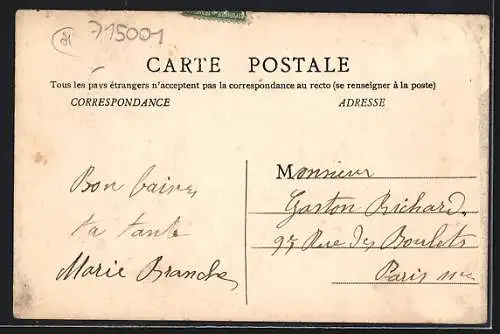 715001
CARTE POSTALE
Tous les pays étrangers n'acceptent pas la correspondance au recto (se renseigner à la poste)
CORRESPONDANCE
ADRESSE
Bon baises
ta tante
Marie Branche
Monsieur
Gaston Richard,
95 Rue des Boulets
Paris